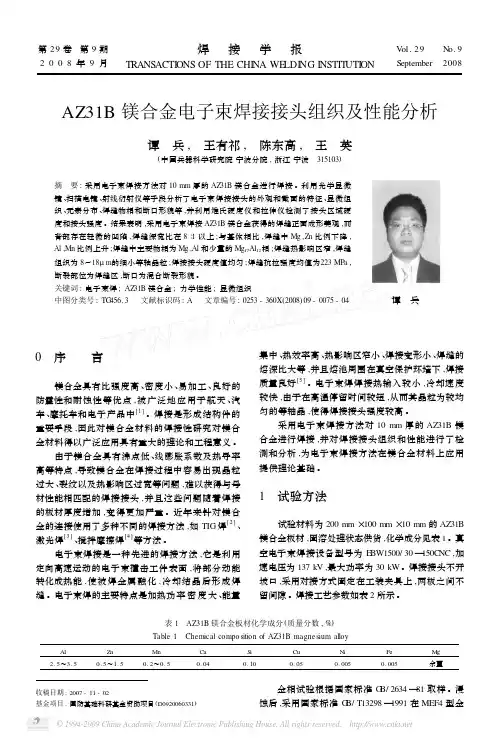 第29卷 第9期
2 0 0 8 年 9 月
焊 接 学 报
TRANSACTIONS OF THE CHINA WELDING INSTITUTION
Vol. 29 No. 9
September 2008
AZ31B 镁合金电子束焊接接头组织及性能分析
谭 兵, 王有祁, 陈东高, 王 英
(中国兵器科学研究院 宁波分院, 浙江 宁波 315103)
摘 要: 采用电子束焊接方法对 10 mm 厚的 AZ31B 镁合金进行焊接。利用光学显微
镜、扫描电镜、射线衍射仪等手段分析了电子束焊接接头的外观和截面的特征、显微组
织、元素分布、焊缝物相和断口形貌等, 并利用维氏硬度仪和拉伸仪检测了接头区域硬
度和接头强度。结果表明, 采用电子束焊接 AZ31B 镁合金获得的焊缝正面成形美观, 而
背部存在轻微的凹陷, 焊缝深宽比在 8∶1 以上; 与基体相比, 焊缝中 Mg, Zn 比例下降,
Al, Mn 比例上升; 焊缝中主要物相为 Mg, Al 和少量的 Mg17Al12 相; 焊缝热影响区窄, 焊缝
组织为 8~18μm 的细小等轴晶粒; 焊接接头硬度值均匀; 焊缝抗拉强度均值为 223 MPa,
断裂部位为焊缝区, 断口为混合断裂形貌。
关键词: 电子束焊; AZ31B 镁合金; 力学性能; 显微组织
中图分类号: TG456. 3 文献标识码: A 文章编号: 0253 - 360X(2008) 09 - 0075 - 04
谭 兵
0 序 言
镁合金具有比强度高、密度小、易加工、良好的
防震性和耐蚀性等优点, 被广泛地应用于航天、汽
车、摩托车和电子产品中[1]。焊接是形成结构件的
重要手段, 因此对镁合金材料的焊接性研究对镁合
金材料得以广泛应用具有重大的理论和工程意义。
由于镁合金具有沸点低、线膨胀系数及热导率
高等特点, 导致镁合金在焊接过程中容易出现晶粒
过大、裂纹以及热影响区过宽等问题, 难以获得与母
材性能相匹配的焊接接头, 并且这些问题随着焊接
的板材厚度增加, 变得更加严重。近年来针对镁合
金的连接使用了多种不同的焊接方法, 如 TIG 焊[2]、
激光焊[3]、搅拌摩擦焊[4]等方法。
电子束焊接是一种先进的焊接方法, 它是利用
定向高速运动的电子束撞击工件表面, 将部分动能
转化成热能, 使被焊金属融化, 冷却结晶后形成焊
缝。电子束焊的主要特点是加热功率密度大、能量
集中、热效率高、热影响区窄小、焊接变形小、焊缝的
熔深比大等, 并且熔池周围在真空保护环境下, 焊接
质量良好[5]。电子束焊焊接热输入较小, 冷却速度
较快, 由于在高温停留时间较短, 从而其晶粒为较均
匀的等轴晶, 使得焊接接头强度较高。
采用电子束焊接方法对 10 mm 厚的 AZ31B 镁
合金进行焊接, 并对焊接接头组织和性能进行了检
测和分析, 为电子束焊接方法在镁合金材料上应用
提供理论基础。
1 试验方法
试验材料为 200 mm ×100 mm ×10 mm 的 AZ31B
镁合金板材, 固溶处理状态供货, 化学成分见表 1。真
空电子束焊接设备型号为 EBW1500/ 30 —150CNC, 加
速电压为 137 kV, 最大功率为 30 kW。焊接接头不开
坡口, 采用对接方式固定在工装夹具上, 两板之间不
留间隙。焊接工艺参数如表 2 所示。
表 1 AZ31B 镁合金板材化学成分(质量分数, %)
Table 1 Chemical composition of AZ31B magnesium alloy
Al Zn Mn Ca Si Cu Ni Fe Mg
2. 5~3. 5 0. 5~1. 5 0. 2~0. 5 0. 04 0. 10 0. 05 0. 005 0. 005 余量
收稿日期: 2007 - 11 - 02
基金项目: 国防基础科研基金资助项目(D0920060331)
金相试验根据国家标准 GB/ 2634 —81 取样。浸
蚀后, 采用国家标准 GB/ T13298 —1991 在 MEF4 型金
© 1994-2009 China Academic Journal Electronic Publishing House. All rights reserved. http://www.cnki.net